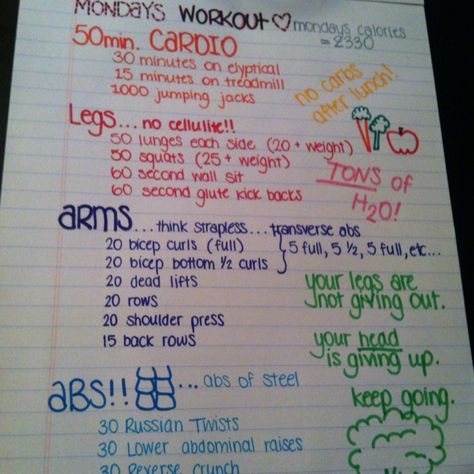 MONDAYS WORKOUT
mondays calories
= 2330
50min. CARDIO
30 minutes on elyptical
15 minutes on treadmill
1000 jumping jacks
no carbs
after lunch!
Legs... no cellulite!!
50 lunges each side (20 + weight)
50 squats (25 + weight)
60 second wall sit
60 second glute kick backs
TONS of
H2O!
ARMS ...think strapless... transverse abs
20 bicep curls (full)
20 bicep bottom 1/2 curls
5 full, 5 1/2, 5 full, etc...
20 dead lifts
20 rows
20 shoulder press
15 back rows
your legs are
not giving out.
your head
is giving up.
keep going.
ABS!! ... abs of steel
30 Russian Twists
30 Lower abdominal raises
30 Reverse crunch